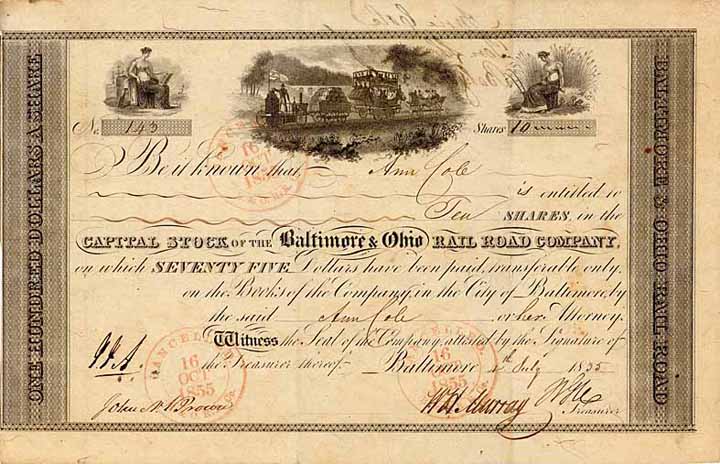 No. 143
Shares 10
Be it known that Ann Cole
is entitled to
Ten SHARES, in the
CAPITAL STOCK OF THE Baltimore & Ohio RAIL ROAD COMPANY,
on which SEVENTY FIVE Dollars have been paid, transferable only,
on the Books of the Company, in the City of Baltimore, by
the said Ann Cole or her Attorney.
Witness the Seal of the Company, attested by the Signature of
the Treasurer thereof. Baltimore July 1835
John N. Brown
W H Murray
Treasurer
ONE HUNDRED DOLLARS A SHARE
BALTIMORE & OHIO RAIL ROAD
CANCELLED
16
OCT
1855
CANCELLED
16
1855
16